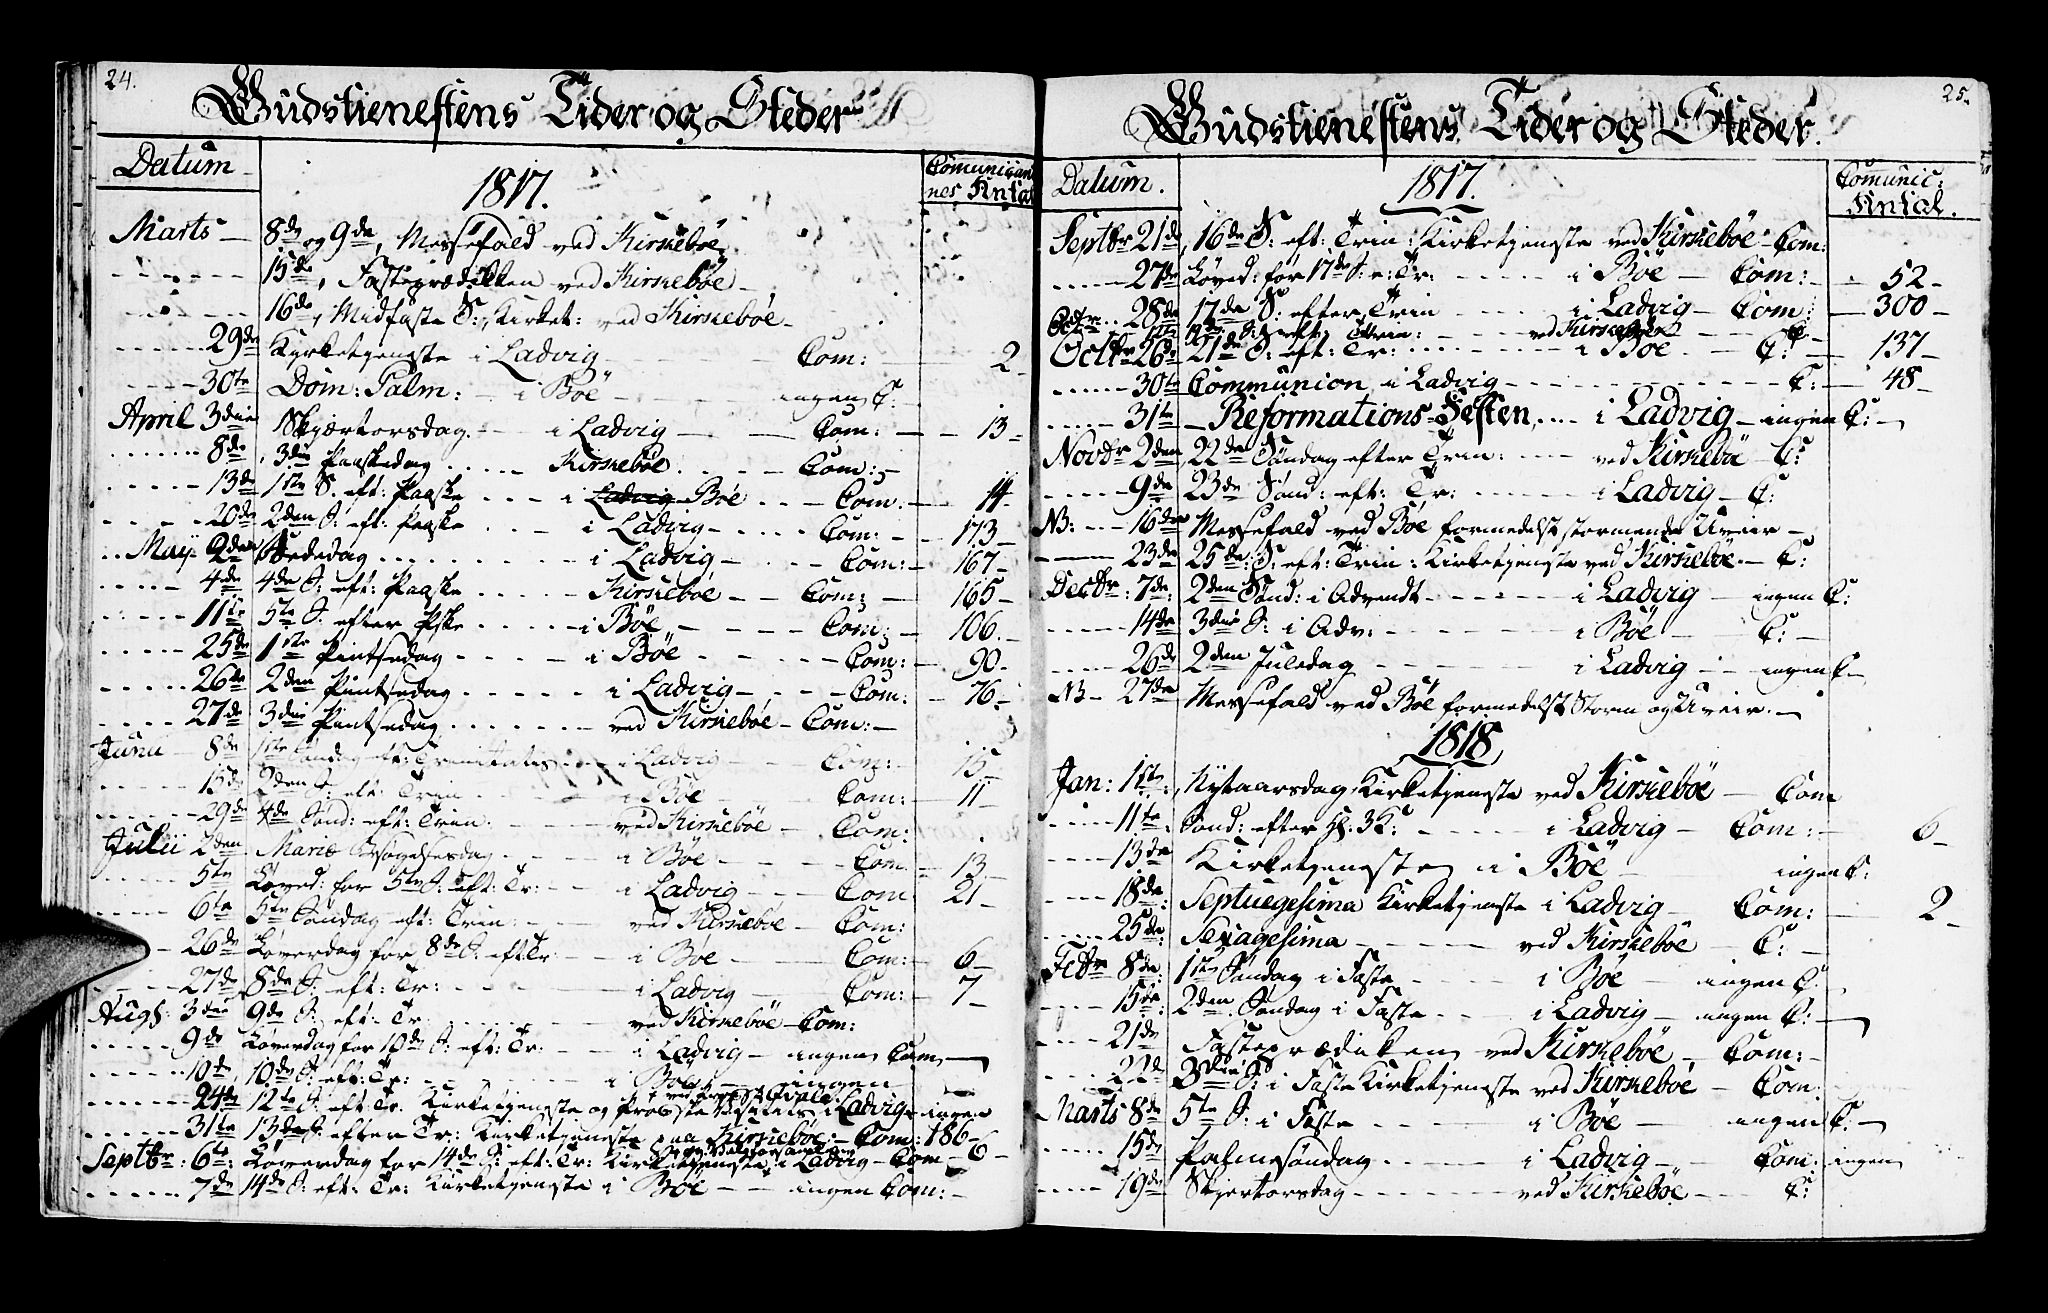 24.
Gudstienestens Tider og Steder
Datum
1817.
Comunican
nes Antal
Marts — 8de og 9de, Messefald ved Kirkebøe
15de, Fasteprædiken ved Kirkebøe —
16de, Midfaste S: Kirket: ved Kirkebøe —
29de Kirketjeneste i Ladvig — Com: 2 —
30te Dom: Palm: i Böe — ingen C:
April 3die Skjærtorsdag. — i Ladvig — Com: — 13 —
8de, 3die Paaskedag Kirkebøe Com: —
13de 1ste S. eft: Paaske i Ladvig Bøe — Com. — 14 —
20de 2den S: eft: Paaske i Ladvig — Com: — 173 —
May 2den Bededag i Ladvig — Com: — 167 —
4de 4de S: eft: Paaske Kirkebøe — Com: — 165 —
11te 5te S. efter Pske i Böe — Com: — 106. —
25de 1ste Pintsedag i Böe — Com: — 90 —
26te 2den Pintsedag i Ladvig — Com: — 76 —
27de 3die Pintsedag ved Kirkebøe — Com: —
Junii — 8de 1ste Søndag eft: Trinitatis i Ladvig — Com: 15 —
15de 2den S: eft: Trin i Böe Com: — 11 —
29de 4de Sönd: eft: Trin: ved Kirkebøe — Com:
Julii 2den Mariæ Besøgelsesdag i Bøe — Com — 13 —
5te Løverd: for 5te S: eft: Tr: i Ladvig — Com 21 —
6te 5te Søndag eft: Trin: ved Kirkebøe — Com:
26de Løverdag for 8de S. eft Tr i Bøe — Com: — 6 —
27de 8de S: eft: Tr: i Ladvig — Com: — 7 —
Augs: 3die 9de S: eft: Tr. ved Kirkebøe — Com:
9de Løverdag for 10de S: eft: Tr: i Ladvig — ingen Com —
10de 10de S: eft: Tr: i Böe — ingen
24de 12te S. eft Tr. Kirketjeneste og Provste Visitats i Ladvig — ingen
31te 13de S. efter Tr: Kirketjeneste paa Kirkebøe: — Com: 186 —
Septbr: 6te: Løverdag for 14de S: eft: Tr: Kirketjeneste i Ladvig — Com — 6 —
7de 14de S: eft: Tr: Kirketjeneste i Böe — ingen Com: —
25.
Gudstienestens Tider og Steder.
Datum.
1817.
Comunic:
Antal.
Septbr 21de, 16de S: eft: Trin: Kirketjeneste ved Kirkebøe — Com:
27de Løverd: før 17de S: e: Tr: i Böe — Com: — 52 —
28de 17de S: efter Trin i Ladvig — Com: — 300 —
Octr. 19de S: eft: Trin: ved Kirkebøe C:
Octbr 26de 21de S: eft: Tr: i Böe. — C: — 137 —
30te Communion i Ladvig C: — 48 —
31te — Reformations-Festen, i Ladvig — ingen C: —
Novbr 2den, 22de Søndag efter Trin: ved Kirkebø — C:
9de 23de Sönd: eft: Tr: i Ladvig — C:
NB: 16de Messefald ved Böe formedelst stormende Uveir —
23de 25de S: eft: Trin: Kirketjeneste ved Kirkebøe. — C:
Decbr: 7de: 2den Sönd: i Advendt i Ladvig — ingen C:
14de 3die S: i Adv: i Böe — C: —
26de 2den Juledag i Ladvig — ingen C —
NB — 27de Messefald ved Böe formedelst Storm og Uveir. —
1818
Jan: 1ste, Nytaarsdag, Kirketjeneste ved Kirkebøe — Com
11te. Sönd: efter H. 3K: i Ladvig — Com: — 6 —
13de Kirketjeneste i Böe — ingen C:
18de. Septuagesima Kirketjeneste i Ladvig — Com: — 2 —
25de. Sexagesima ved Kirkebøe — C: —
Febr 8de. 1ste Søndag i Faste i Böe — ingen C:
15de. 2den Søndag i Faste i Ladvig — ingen C: —
21de Fasteprædiken ved Kirkebøe — Com: —
22de 3die S: i Faste Kirketjeneste ved Kirkebøe — Com:
Marts 8de 5te S: i Faste i Böe — ingen C: —
15de Palmesøndag i Ladvig — Com: ingen
19de Skjertorsdag ved Kirkebøe C: